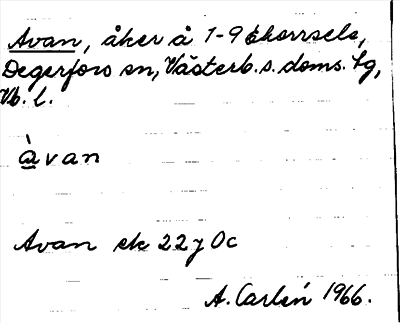 Avan, åker å 1-9 Ekorrsele,
Degerfors sn, Västerb. s. doms. tg,
Vb. l.
àvan
Avan ek 22 J 0c
A. Carlén 1966.